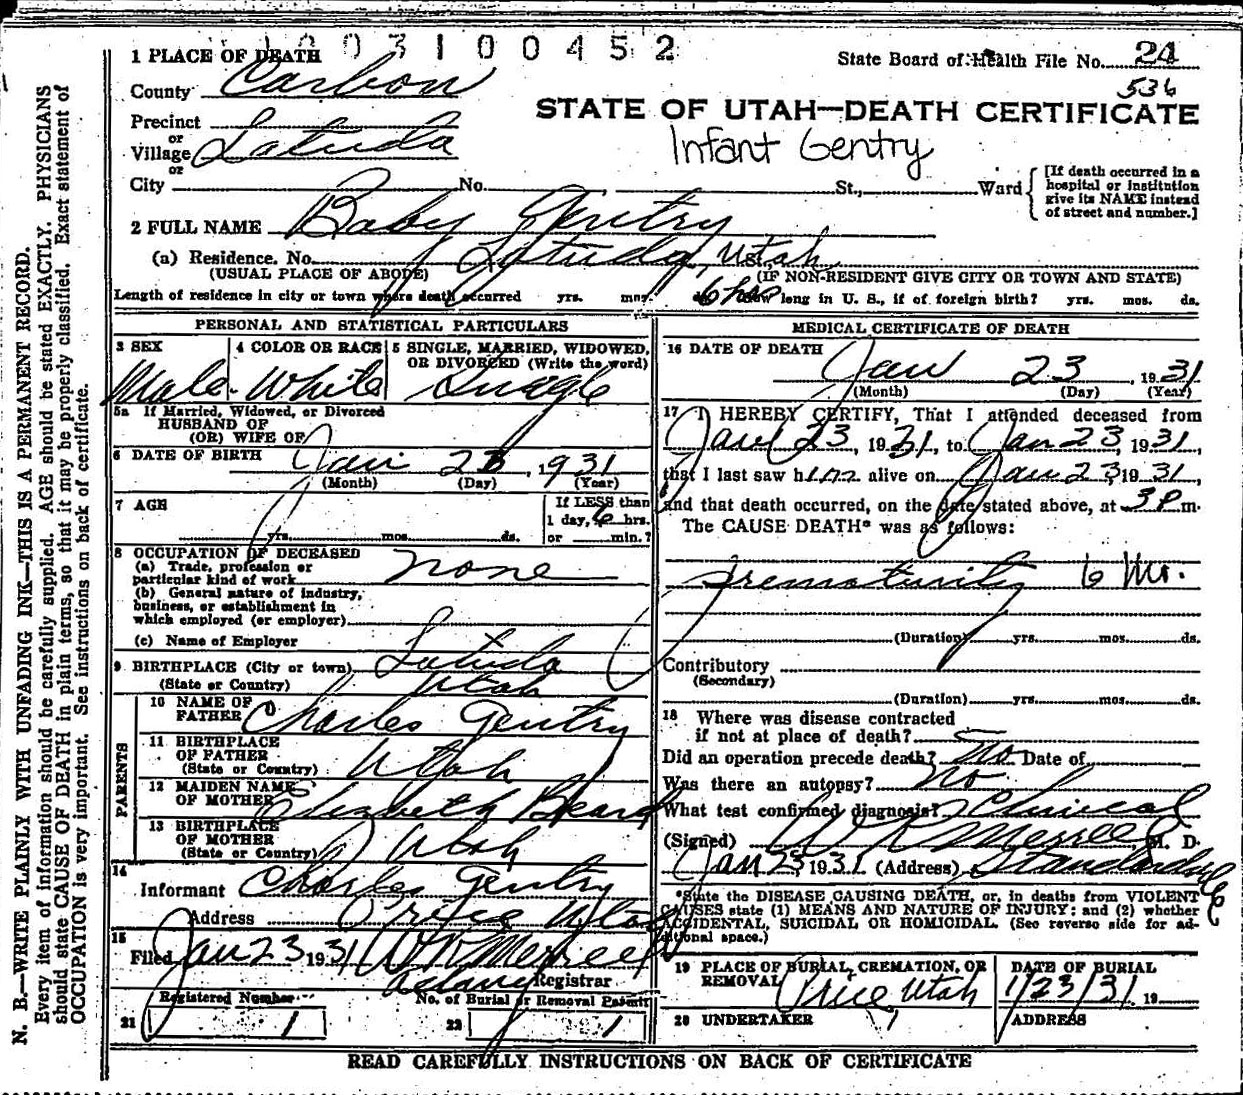 1003100452
1 PLACE OF DEATH
State Board of Health File No. 24
536
County Carbon
STATE OF UTAH—DEATH CERTIFICATE
Infant Gentry
Precinct
or
Village Latuda
or
City No. St., Ward
[If death occurred in a
hospital or institution
give its NAME instead
of street and number.]
2 FULL NAME Baby Gentry
(a) Residence. No. Latuda, Utah
(USUAL PLACE OF ABODE) (IF NON-RESIDENT GIVE CITY OR TOWN AND STATE)
Length of residence in city or town where death occurred yrs. mos. 6 hrs How long in U. S., if of foreign birth? yrs. mos. ds.
PERSONAL AND STATISTICAL PARTICULARS
3 SEX 4 COLOR OR RACE 5 SINGLE, MARRIED, WIDOWED,
OR DIVORCED (Write the word)
Male White Single
5a If Married, Widowed, or Divorced
HUSBAND OF
(OR) WIFE OF
6 DATE OF BIRTH Jan 23, 1931
(Month) (Day) (Year)
7 AGE If LESS than
1 day, 6 hrs.
yrs. mos. ds. or min.?
8 OCCUPATION OF DECEASED
(a) Trade, profession or
particular kind of work none
(b) General nature of industry,
business, or establishment in
which employed (or employer)
(c) Name of Employer
9 BIRTHPLACE (City or town) Latuda
(State or Country) Utah
PARENTS
10 NAME OF
FATHER Charles Gentry
11 BIRTHPLACE
OF FATHER
(State or Country) Utah
12 MAIDEN NAME
OF MOTHER Elizabeth Beard
13 BIRTHPLACE
OF MOTHER
(State or Country) Utah
14
Informant Charles Gentry
Address Price Utah
15
Filed Jan 23 1931 W K Merrell
Registrar
Registered Number No. of Burial or Removal Permit
21 1 22 1
MEDICAL CERTIFICATE OF DEATH
16 DATE OF DEATH
Jan 23, 1931
(Month) (Day) (Year)
17 I HEREBY CERTIFY, That I attended deceased from
Jan 23, 1931, to Jan 23, 1931,
that I last saw him alive on Jan 23 1931,
and that death occurred, on the date stated above, at 3 P m.
The CAUSE DEATH* was as follows:
Prematurity 6 Mo.
(Duration) yrs. mos. ds.
Contributory
(Secondary)
(Duration) yrs. mos. ds.
18 Where was disease contracted
if not at place of death?
Did an operation precede death? no Date of
Was there an autopsy? no
What test confirmed diagnosis? Clinical
(Signed) W K Merrell, M. D.
Jan 23 1931 (Address)
*State the DISEASE CAUSING DEATH, or, in deaths from VIOLENT
CAUSES state (1) MEANS AND NATURE OF INJURY; and (2) whether
ACCIDENTAL, SUICIDAL OR HOMICIDAL. (See reverse side for ad-
ditional space.)
19 PLACE OF BURIAL, CREMATION, OR
REMOVAL Price, Utah
DATE OF BURIAL
1/23/31, 19
20 UNDERTAKER
ADDRESS
READ CAREFULLY INSTRUCTIONS ON BACK OF CERTIFICATE
N. B.—WRITE PLAINLY WITH UNFADING INK—THIS IS A PERMANENT RECORD.
Every item of information should be carefully supplied. AGE should be stated EXACTLY. PHYSICIANS
should state CAUSE OF DEATH in plain terms, so that it may be properly classified. Exact statement of
OCCUPATION is very important. See instructions on back of certificate.